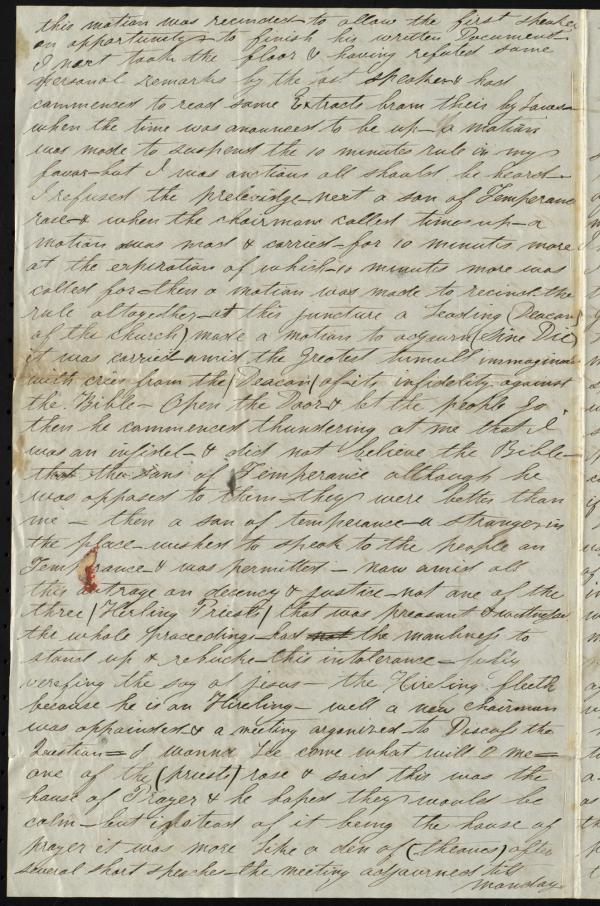 this motion was recinded to allow the first speaker
an opportunity to finish his written Document
I next took the floor & having refuted some
personal remarks by the last speaker & had
commenced to read some Extracts from their by Laws
when the time was anounced to be up – a motion
was made to suspend the 10 minutes rule in my
favor – but I was anctious all should be heard –
I refused the preleviedge – next a son of Temperance
rose – & when the chairman called times up – a
motion was mad & carried – for 10 minutes more
at the expiration of which – 10 minutes more was
called for – then a motion was made to recind the
rule altogether – at this juncture a Leading (Deacon)
of the Church) made a motion to adjourn (Sine Die)
it was carried – amid the Greatest tumult immaginable
with cries from the (Deacon) of its infidelity against
the Bible – Open the Door & let the people Go
then he commenced thundering at me that I
was an infidel – & did not believe the Bible –
that the Sons of Temperance although he
was opposed to them – they were better than
me – then a son of temperance – a stranger in
the place – wished to speak to the people on
Temperance – & was permitted – now amid all
this outrage on decency & justice – not one of the
three (Herling Priests) that was preasant &
the whole proceedings – had not the manliness to
stand up & rebuke – this intolerance – fully
verefing the say of jesus – the Hireling fleeth
because he is an Hireling – well a new chairman
was appointed & a meeting organized to Discuss the
Question = I wanna Lie come what will to me =
one of the (priests) rose & said this was the
house of Prayer & he hoped they would be
calm – but instead of it being the house of
prayer it was more like a den of (theaves) after
several short speeches – the meeting adjourned till
monday